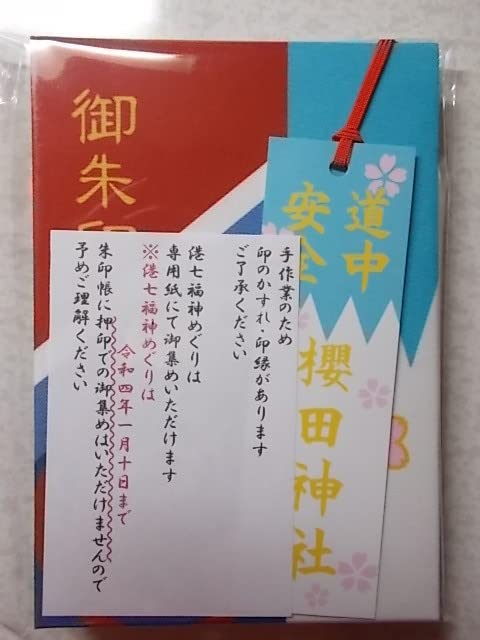 道中
安全
櫻田神社
御朱印
手作業のため
印のかすれ・印縁があります
ご了承ください
港七福神めぐりは
専用紙にて御集めいただけます
※港七福神めぐりは
令和四年一月十日まで
朱印帳に押印での御集めはいただけませんので
予めご理解ください